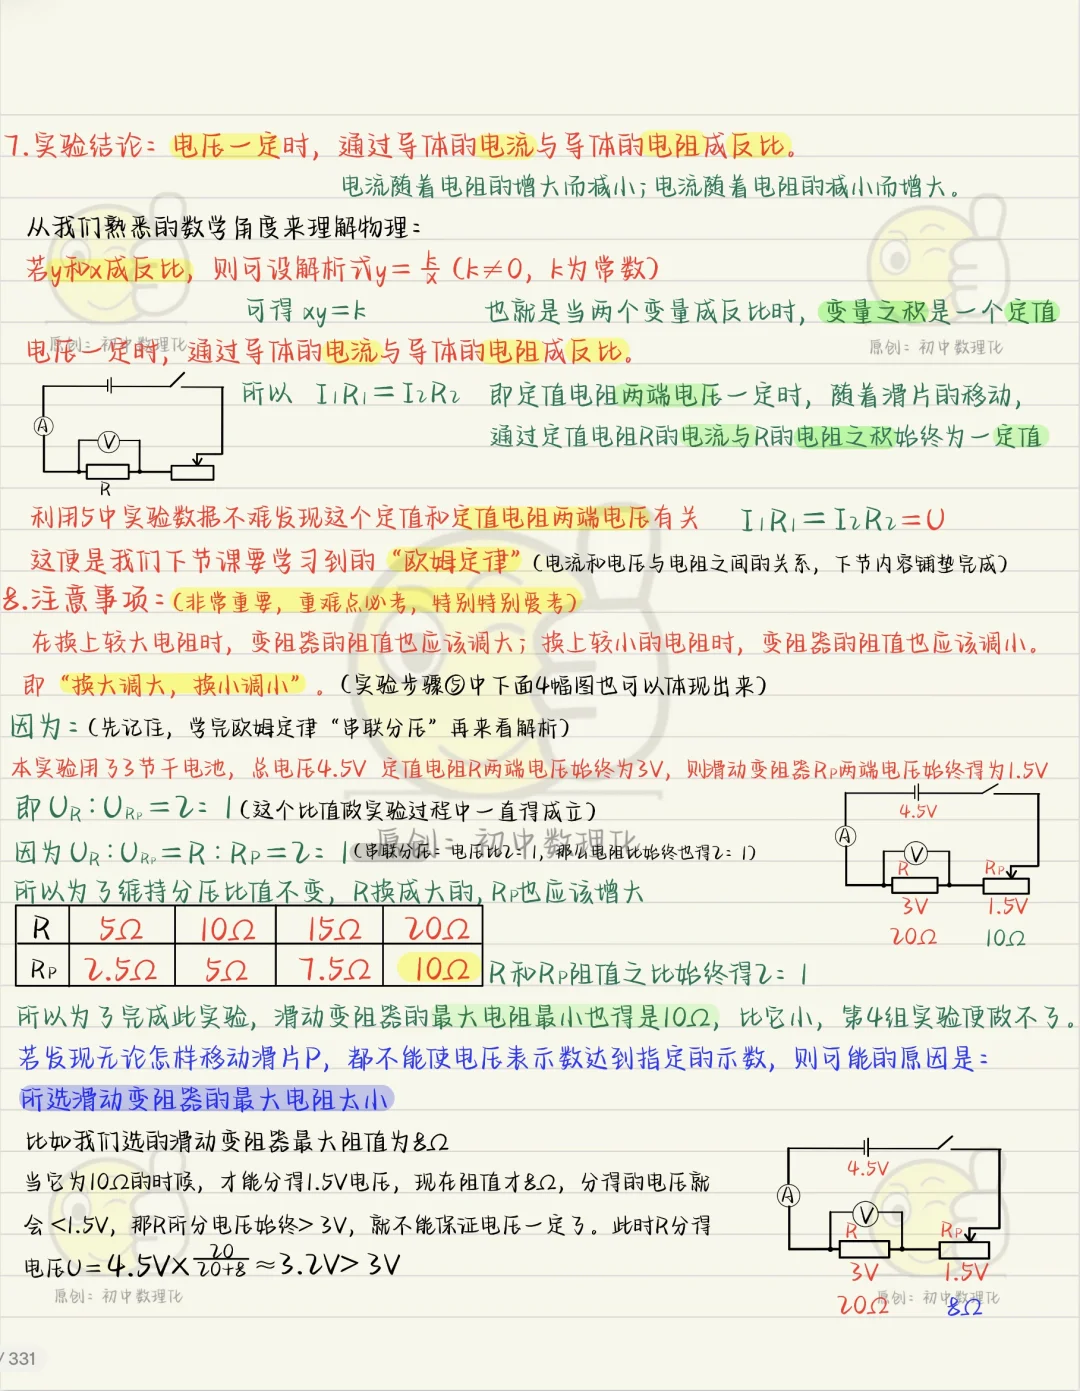 7.实验结论：电压一定时，通过导体的电流与导体的电阻成反比。
电流随着电阻的增大而减小；电流随着电阻的减小而增大。
从我们熟悉的数学角度来理解物理：
若y和x成反比，则可设解析式y=k/x（k≠0，k为常数）
可得 xy=k 也就是当两个变量成反比时，变量之积是一个定值
原创：初中数理化
原创：初中数理化
电压一定时，通过导体的电流与导体的电阻成反比。
所以 I₁R₁=I₂R₂ 即定值电阻两端电压一定时，随着滑片的移动，
通过定值电阻R的电流与R的电阻之积始终为一定值
A
V
R
利用5中实验数据不难发现这个定值和定值电阻两端电压有关 I₁R₁=I₂R₂=U
这便是我们下节课要学习到的“欧姆定律”（电流和电压与电阻之间的关系，下节内容铺垫完成）
8.注意事项：（非常重要，重难点必考，特别特别爱考）
在换上较大电阻时，变阻器的阻值也应该调大；换上较小的电阻时，变阻器的阻值也应该调小。
即“换大调大，换小调小”。（实验步骤⑤中下面4幅图也可以体现出来）
因为：（先记住，学完欧姆定律“串联分压”再来看解析）
本实验用了3节干电池，总电压4.5V 定值电阻R两端电压始终为3V，则滑动变阻器Rₚ两端电压始终得为1.5V
即U_R：U_Rₚ=2：1（这个比值做实验过程中一直得成立）
原创：初中数理化
因为U_R：U_Rₚ=R：Rₚ=2：1（串联分压：电压比2：1，那么电阻比始终也得2：1）
所以为了维持分压比值不变，R换成大的，Rₚ也应该增大
4.5V
A
V
R Rₚ
3V 1.5V
20Ω 10Ω
R 5Ω 10Ω 15Ω 20Ω
Rₚ 2.5Ω 5Ω 7.5Ω 10Ω
R和Rₚ阻值之比始终得2：1
所以为了完成此实验，滑动变阻器的最大电阻最小也得是10Ω，比它小，第4组实验便做不了。
若发现无论怎样移动滑片P，都不能使电压表示数达到指定的示数，则可能的原因是：
所选滑动变阻器的最大电阻太小
比如我们选的滑动变阻器最大阻值为8Ω
当它为10Ω的时候，才能分得1.5V电压，现在阻值才8Ω，分得的电压就
会<1.5V，那R所分电压始终>3V，就不能保证电压一定了。此时R分得
电压U=4.5V×20/20+8≈3.2V>3V
4.5V
A
V
R Rₚ
3V 1.5V
20Ω 8Ω
原创：初中数理化
原创：初中数理化
/ 331